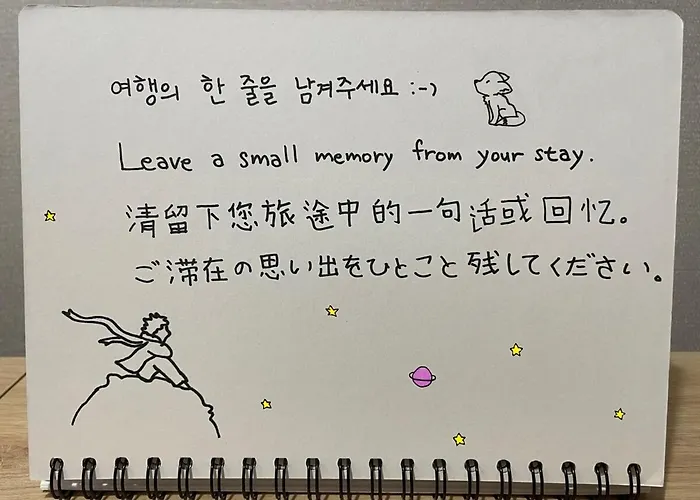 여행의 한 줄을 남겨주세요 :-)
Leave a small memory from your stay.
清留下您旅途中的一句话或回忆。
ご滞在の思い出をひとこと残してください。